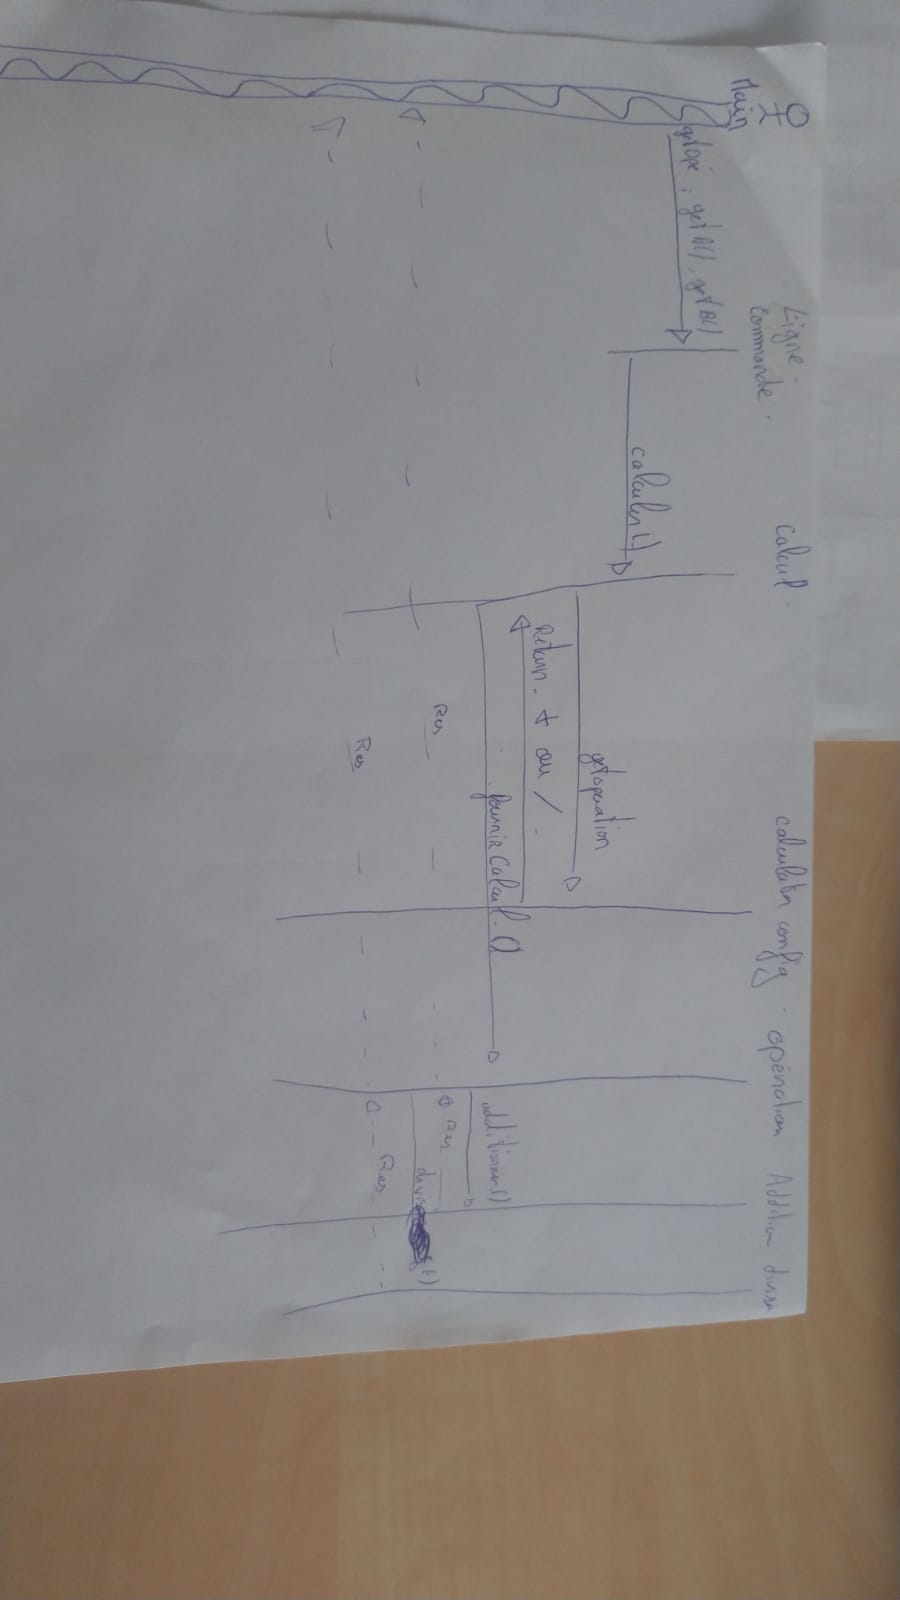 Main
Ligne-
commande.
calcul.
calculator config.
opération
Addition
division
getOpé, getA(), getB()
calculer()
getoperation
Return. + ou /.
fournirCalcul.()
additionne()
Res
Res
Res
Res